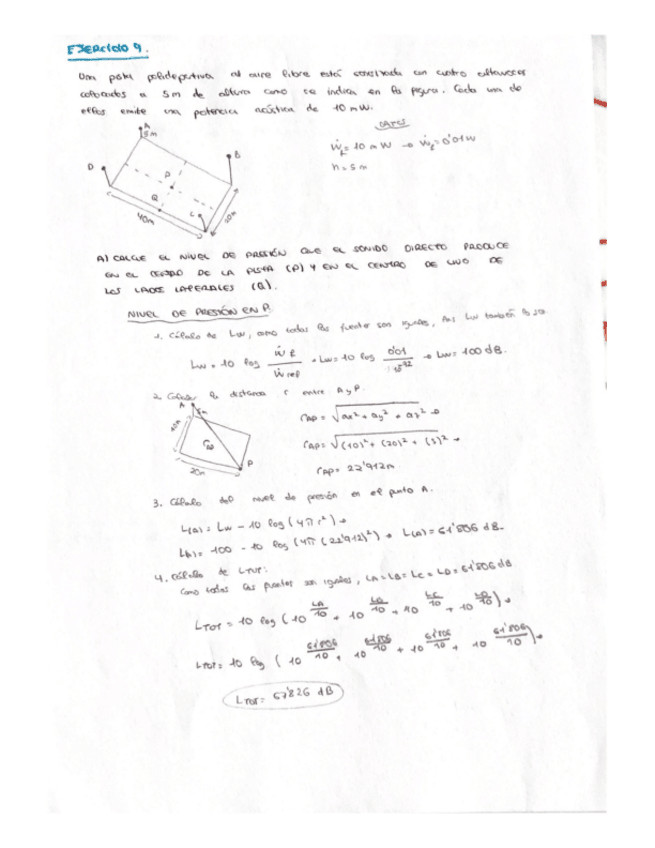 EJERCICIO 9.
Una pista polideportiva al aire libre está sonorizada con cuatro altavoces
colocados a 5m de altura como se indica en la figura. Cada uno de
ellos emite una potencia acústica de 10 mW.
DATOS
Ẇt = 10 mW → Ẇt = 0'01W
h = 5m
A
5m
B
D
P
Q
C
40m
20m
A) CALCULE EL NIVEL DE PRESIÓN QUE EL SONIDO DIRECTO PRODUCE
EN EL CENTRO DE LA PISTA (P) Y EN EL CENTRO DE UNO DE
LOS LADOS LATERALES (Q).
NIVEL DE PRESIÓN EN P.
1. Cálculo de Lw, como todas las fuentes son iguales, sus Lw también lo son
Lw = 10 log Ẇt / Ẇref → Lw = 10 log 0'01 / 10^-12 → Lw = 100 dB.
2. Calcular la distancia r entre A y P.
A
5m
10m
rAP
20m
P
rAP = √(ax² + ay² + az²) →
rAP = √((10)² + (20)² + (5)²) →
rAP = 22'912m
3. Cálculo del nivel de presión en el punto A.
L(A) = Lw - 10 log (4π r²) →
L(A) = 100 - 10 log (4π (22'912)²) → L(A) = 61'806 dB.
4. Cálculo de LTOT:
Como todos los puntos son iguales, LA = LB = LC = LD = 61'806 dB
LTOT = 10 log (10^(LA/10) + 10^(LB/10) + 10^(LC/10) + 10^(LD/10)) →
LTOT = 10 log (10^(61'806/10) + 10^(61'806/10) + 10^(61'806/10) + 10^(61'806/10)) →
LTOT = 67'826 dB